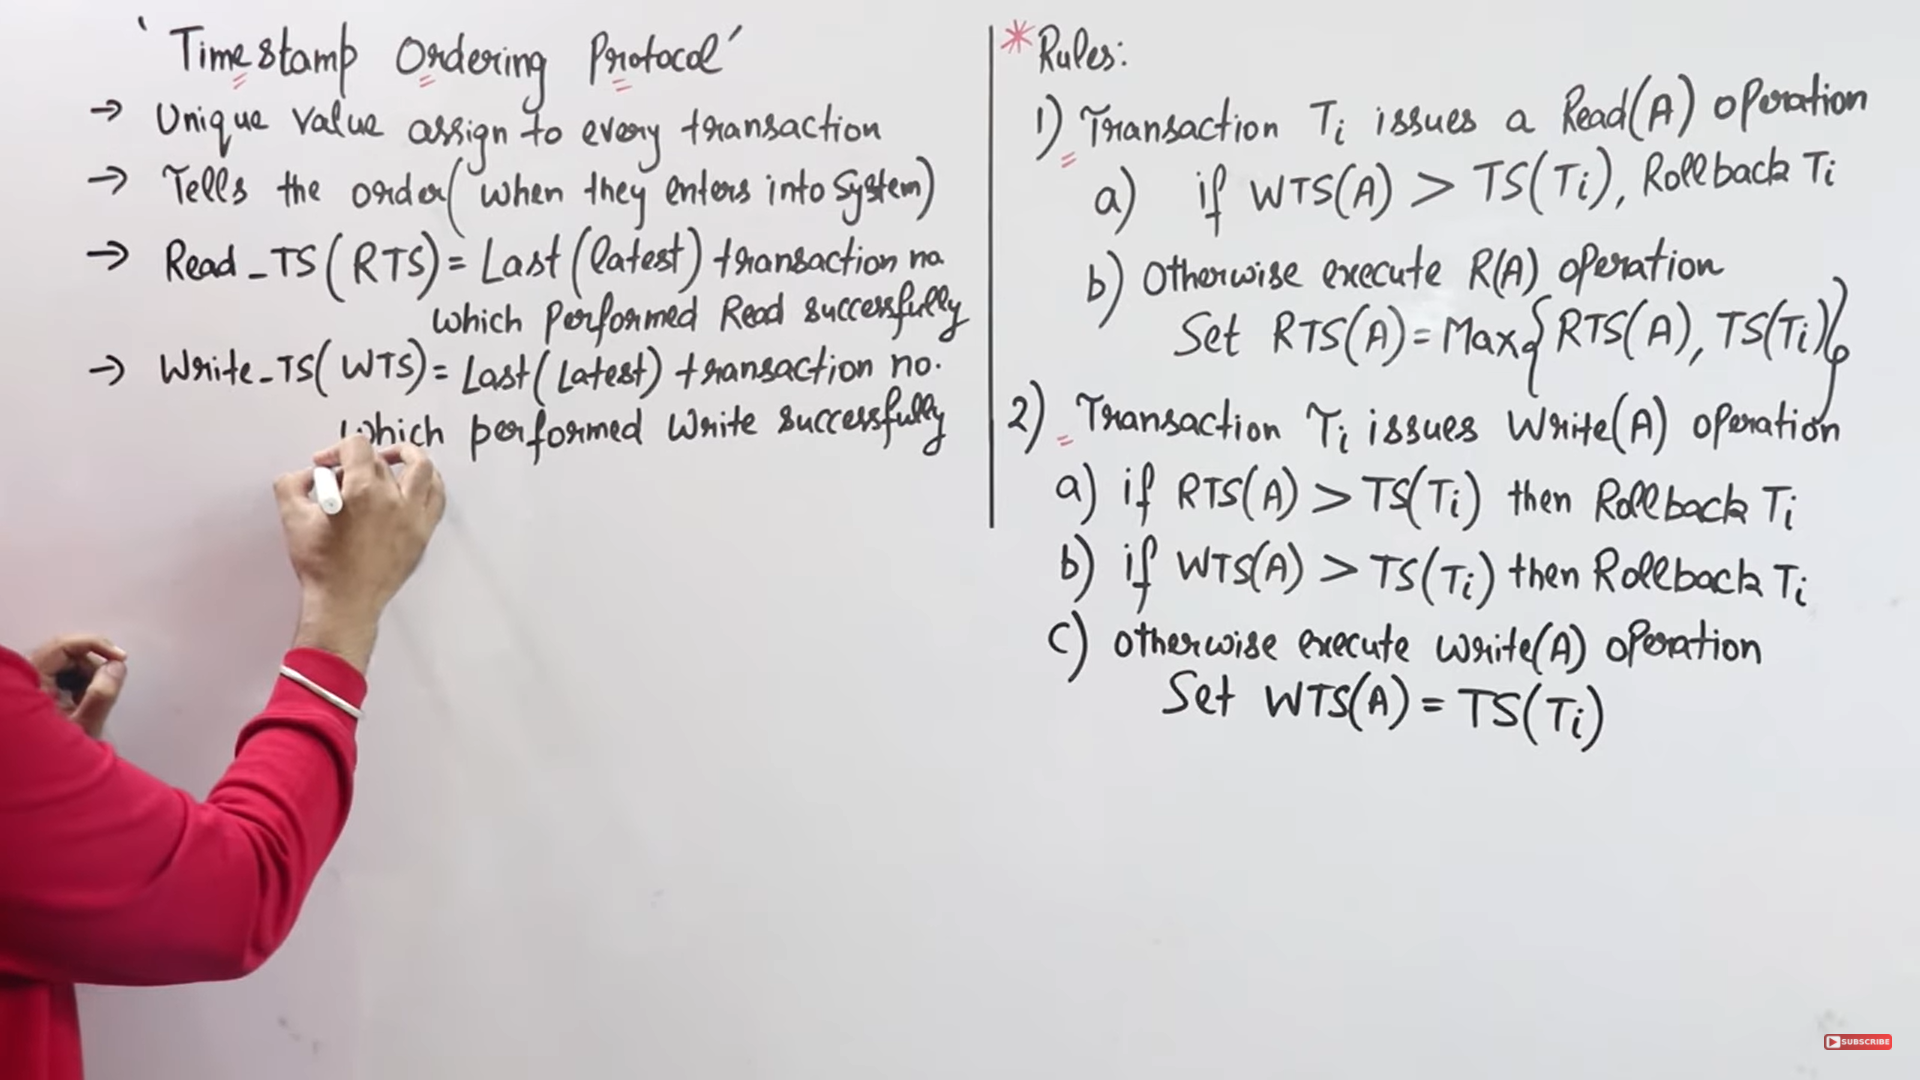 'Timestamp Ordering Protocol'
→ Unique value assign to every transaction
→ Tells the order(when they enters into System)
→ Read_TS(RTS)= Last(latest) transaction no.
which performed Read successfully
→ Write_TS(WTS)= Last(Latest) transaction no.
which performed Write successfully
*Rules:
1) Transaction Ti issues a Read(A) operation
a) if WTS(A) > TS(Ti), Rollback Ti
b) Otherwise execute R(A) operation
Set RTS(A)=Max{RTS(A), TS(Ti)}
2) Transaction Ti issues Write(A) operation
a) if RTS(A) > TS(Ti) then Rollback Ti
b) if WTS(A) > TS(Ti) then Rollback Ti
c) otherwise execute write(A) operation
Set WTS(A) = TS(Ti)
SUBSCRIBE